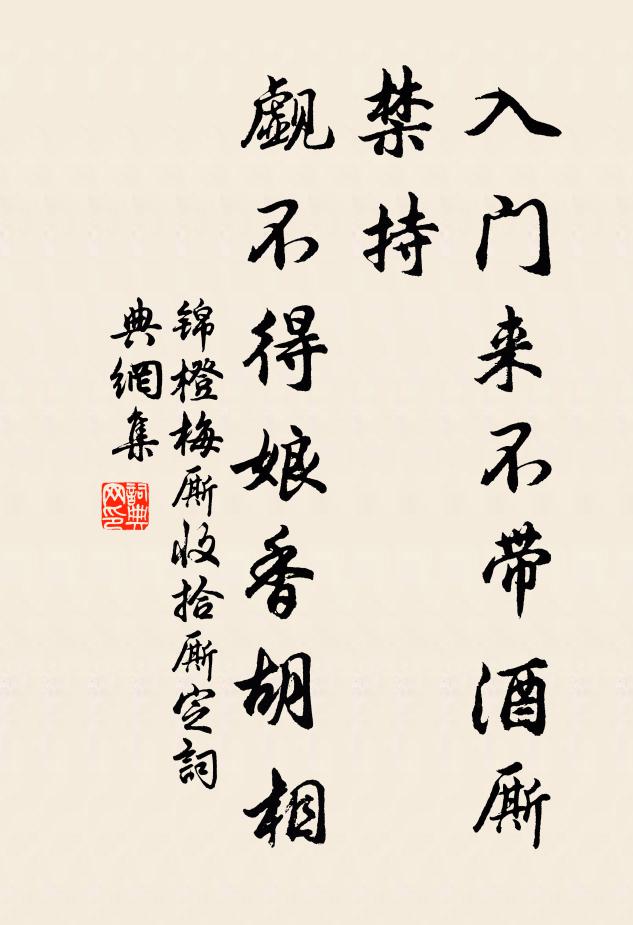 入门来不带酒厮
禁持
觑不得娘香胡相
锦橙梅厮收拾厮定詞
典網集
詞典
网印